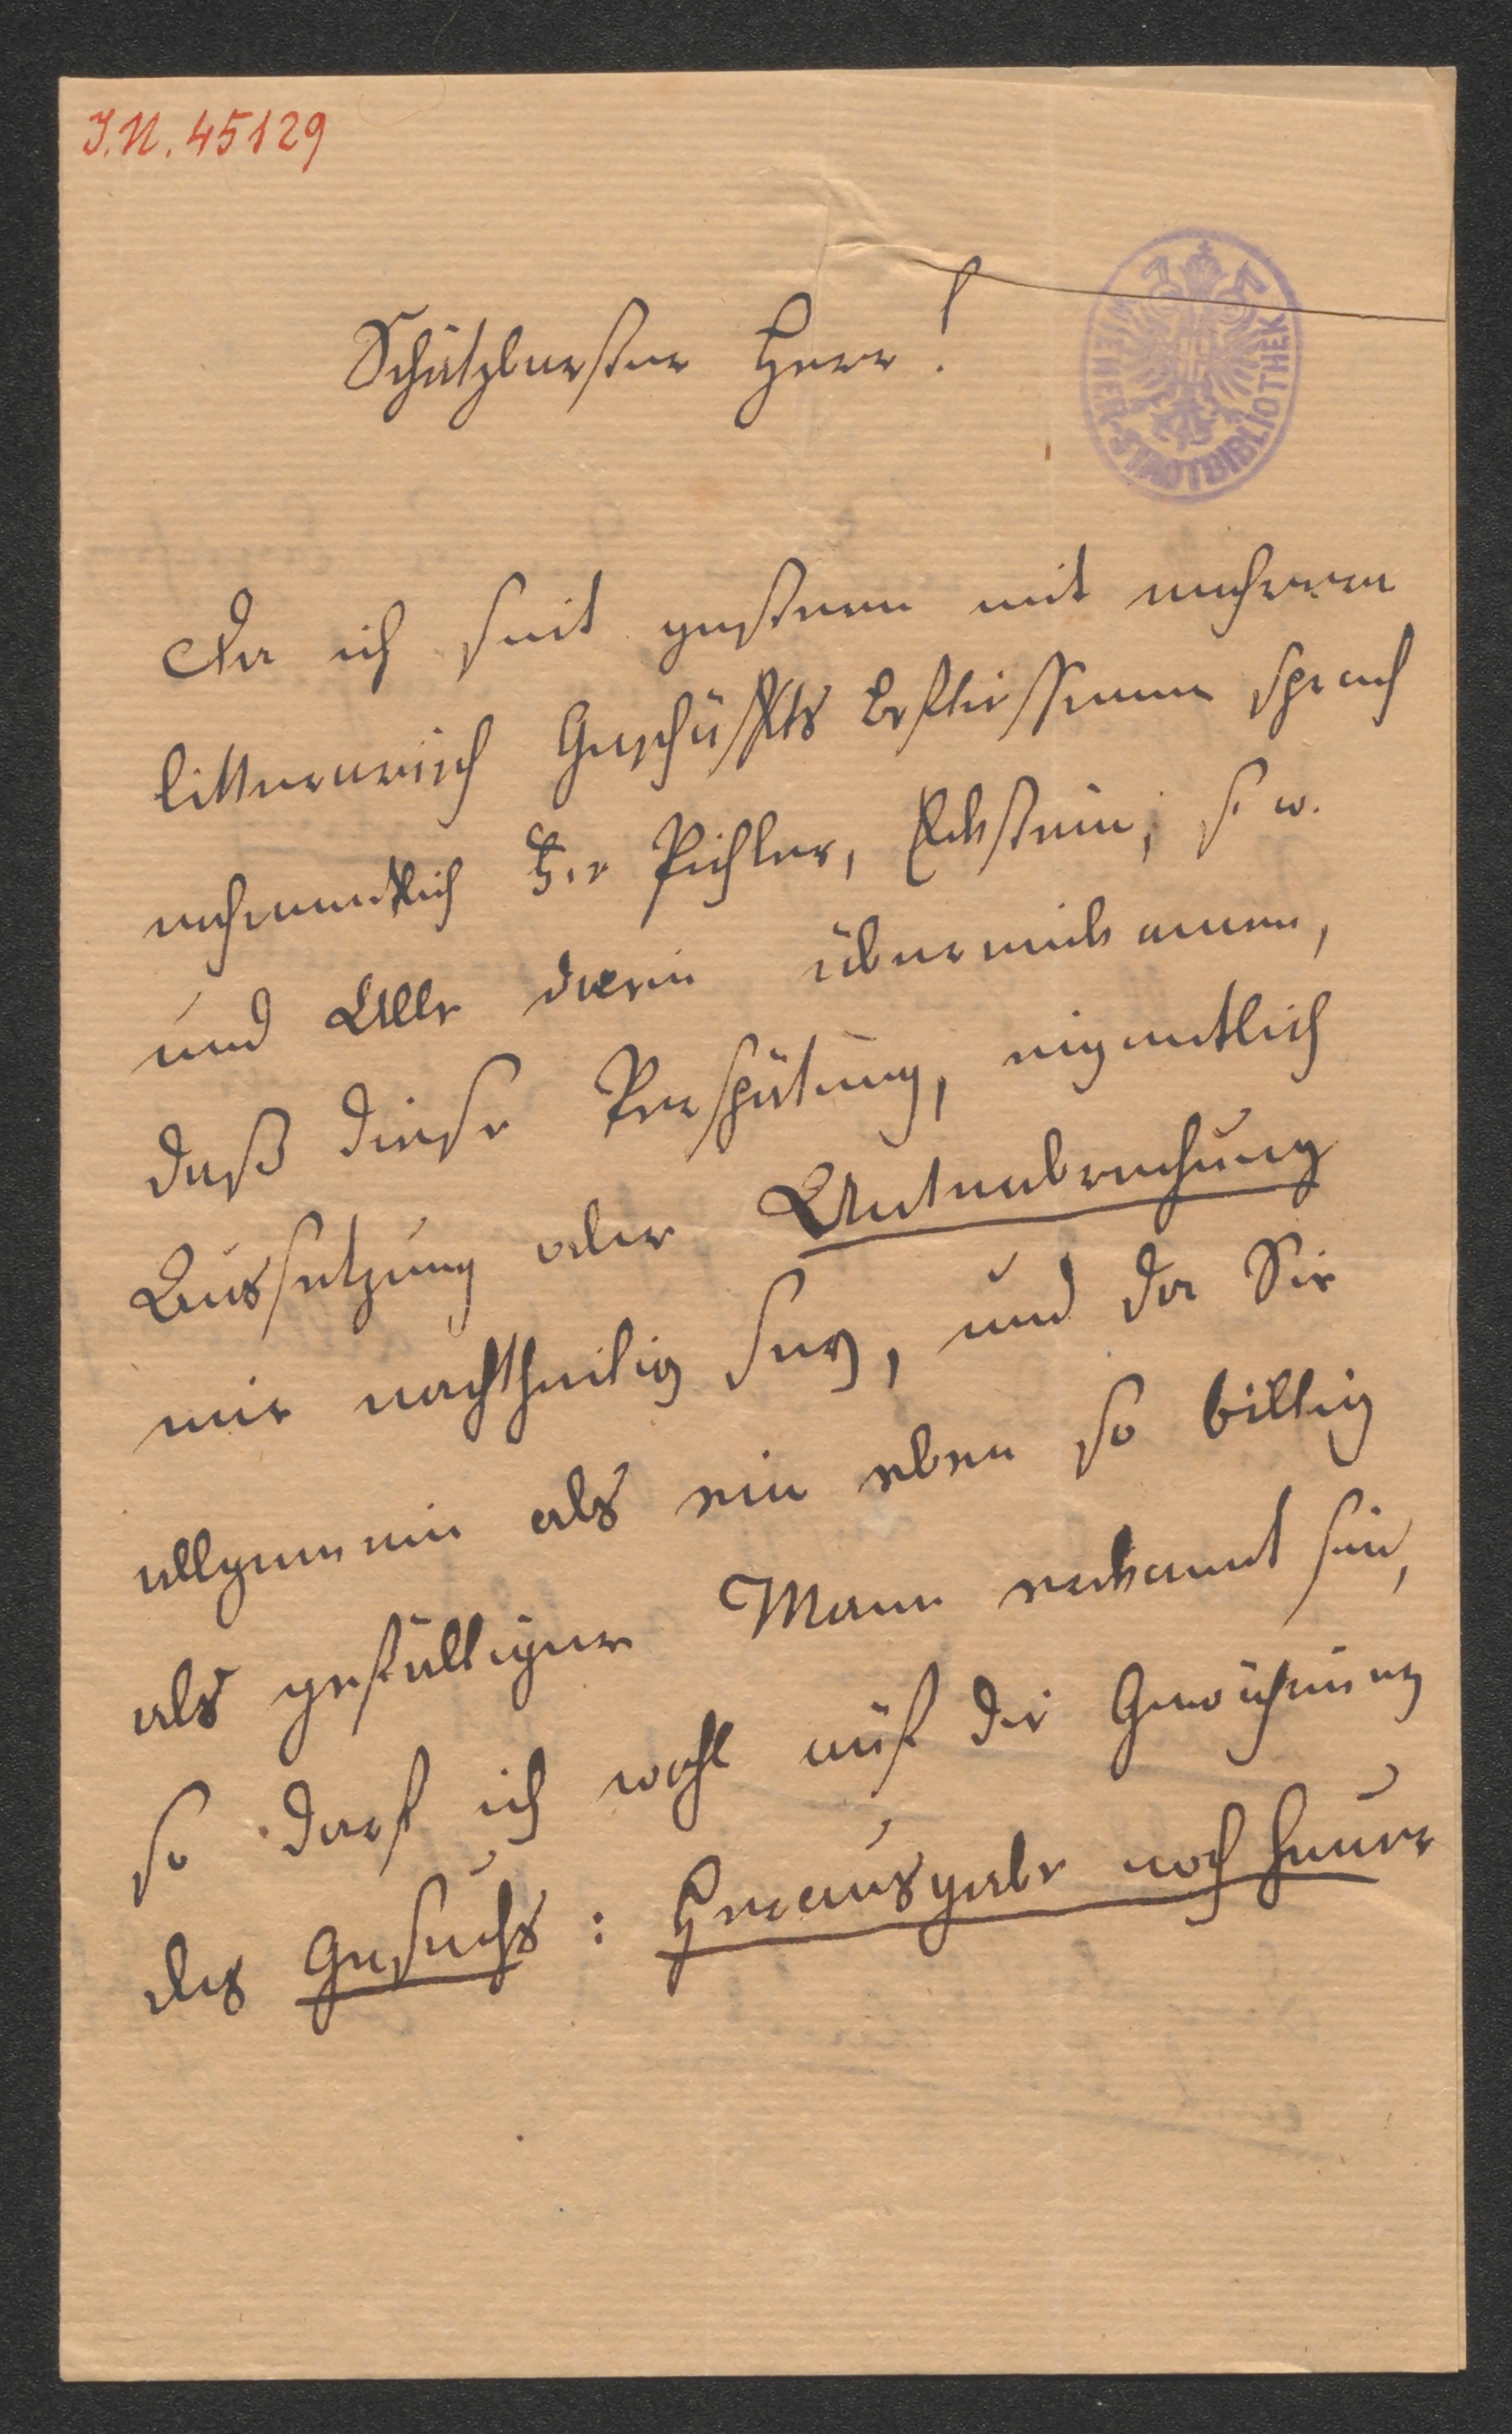 I.N. 45129
WIENER STADTBIBLIOTHEK
Schätzbarster Herr!
Da ich seit gestern mit mehreren
litterarisch Geschäfts beflissenen sprach
nahmentlich Hr Pichler, Eckstein, s. w.
und Alle darin übereinkamen,
daß diese Verspätung, eigentlich
Aussetzung oder Unterbrechung
mir nachtheilig sey, und da Sie
allgemein als ein eben so billig
als gefälliger Mann erkannt sind,
so darf ich wohl auf die Gewährung
des Gesuchs: Herausgabe noch heuer